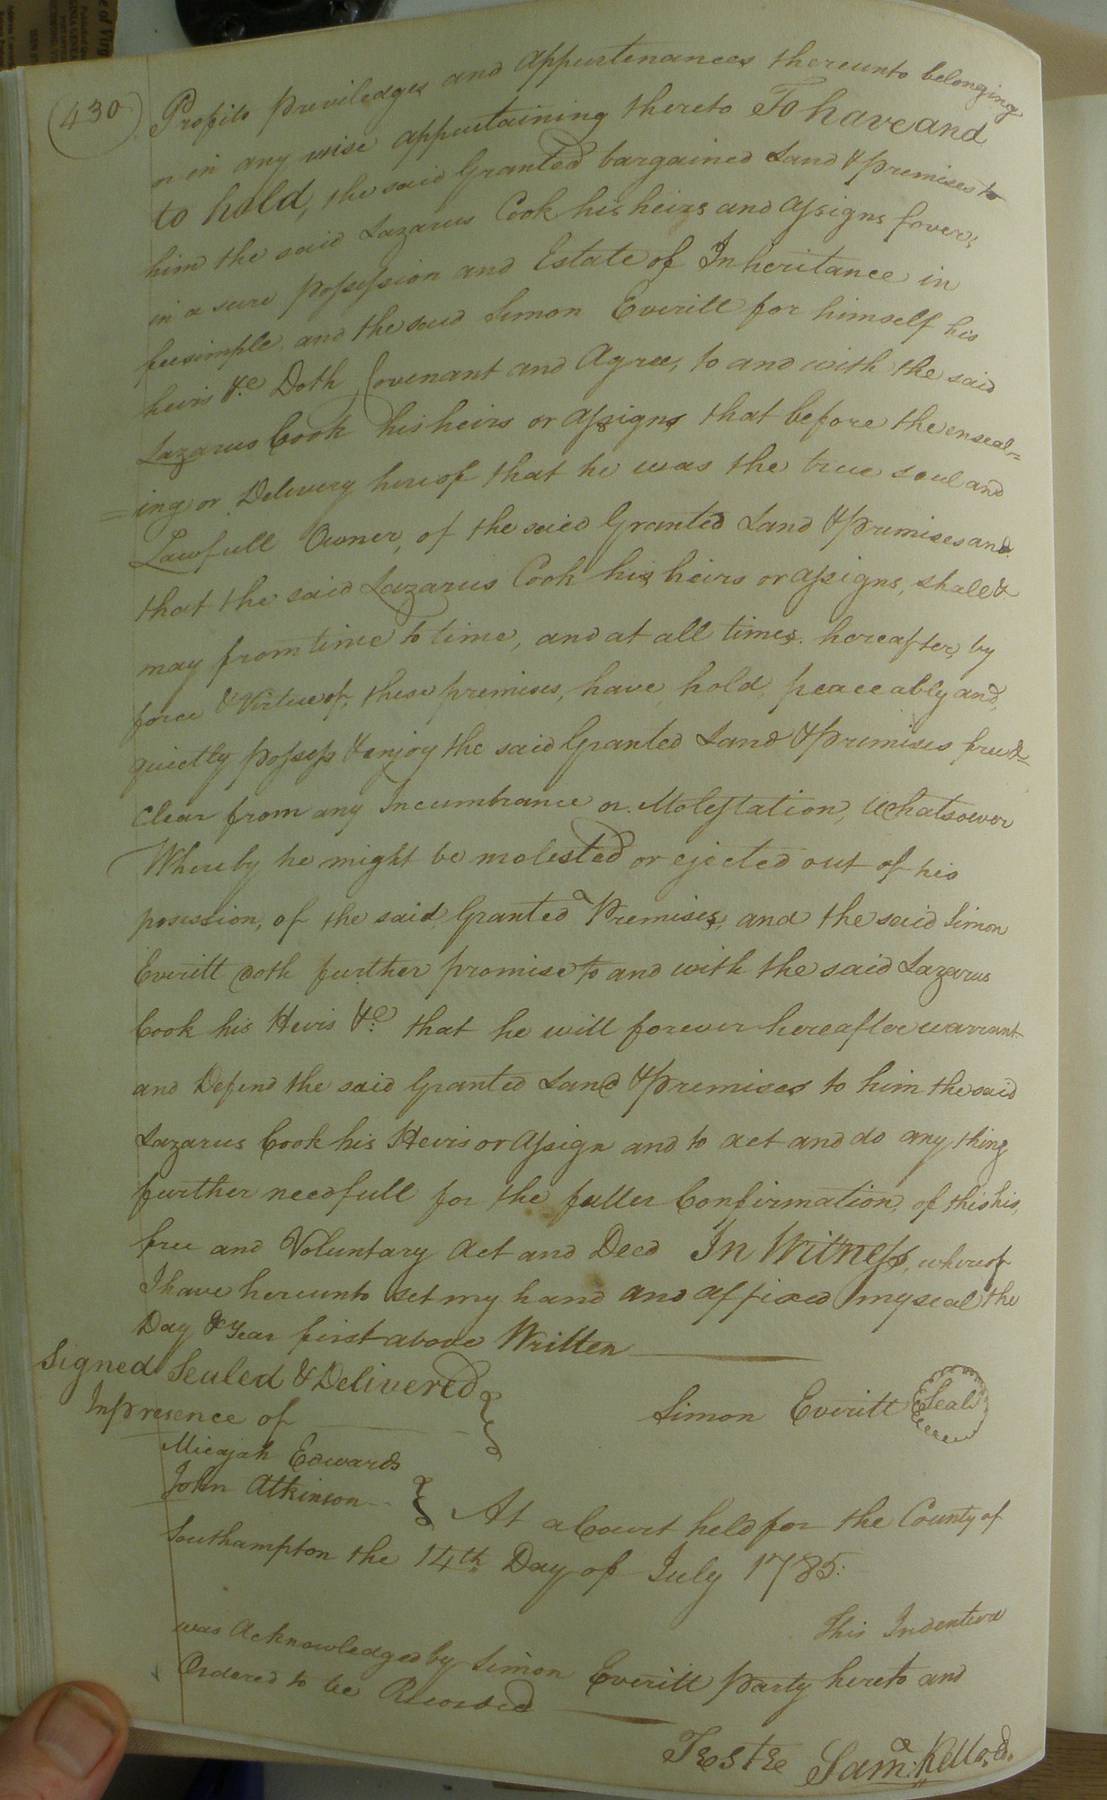 (430) Profits Previledges and Appurtenances thereunto belonging
or in any wise appertaining thereto To have and
to hold, the said Granted bargained Land & premises to
him the said Lazarus Cook his heirs and Assigns forever,
in a sure possession and Estate of Inheritance in
feesimple, and the said Simon Everitt for himself his
heirs &c Doth Covenant and Agree, to and with the said
Lazarus Cook his heirs or Assigns that before the enseal=
=ing or Delivery hereof that he was the true soul and
Lawfull Owner, of the said Granted Land & premises and
that the said Lazarus Cook his heirs or assigns, shall &
may from time to time, and at all times hereafter, by
force & Virtue of, these premises, have hold, peaceably and,
quietly possess & enjoy the said Granted Land & premises free &
Clear from any Incumbrance or Molestation, Whatsoever
Whereby he might be molested or ejected out of his
posession, of the said Granted Premises, and the said Simon
Everitt doth further promise to and with the said Lazarus
Cook his Heirs &c that he will forever hereafter warrant
and Defend the said Granted Land & premises to him the said
Lazarus Cook his Heirs or Assign and to act and do any thing
further needfull for the fuller Confirmation, of this his,
free and Voluntary Act and Deed In Witness, whereof
I have hereunto set my hand and affixed my seal the
Day & Year first above Written
Signed Sealed & Delivered
In presence of
Simon Everitt Seal
Micajah Edwards
John Atkinson
At a Court held for the County of
Southampton the 14th Day of July 1785.
This Indenture
was Acknowledged by Simon Everitt Party hereto and
Ordered to be Recorded
Teste Saml. Kello, Cl.